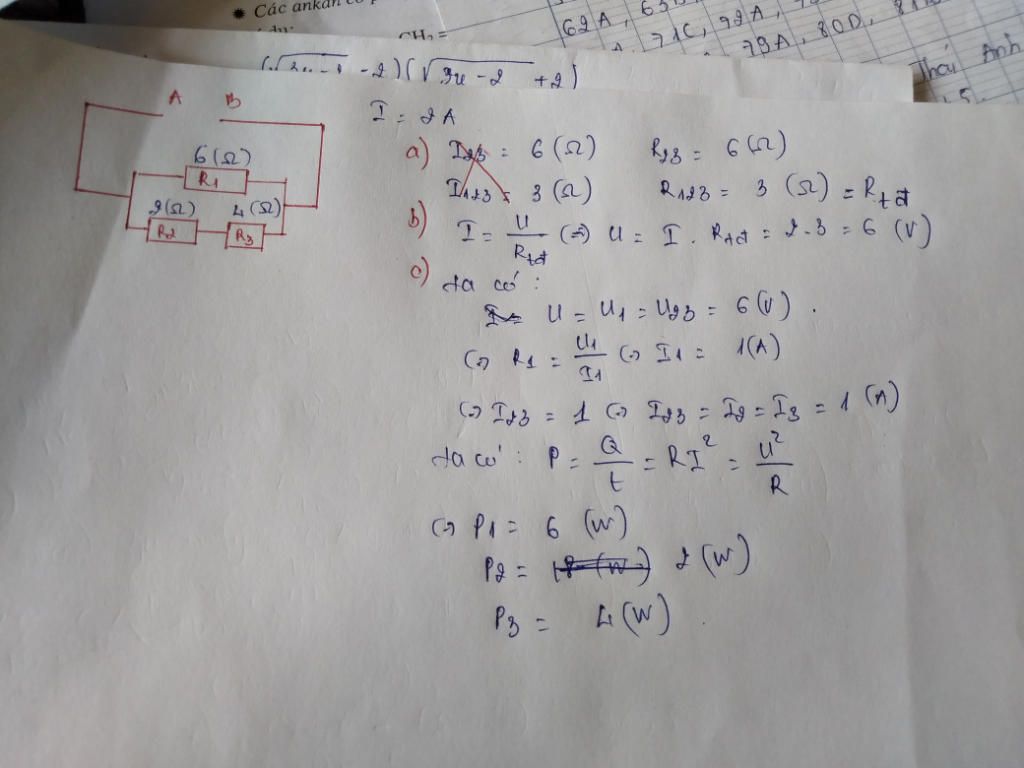 Các ankan có
CH₂ =
62A,
71C, 72A,
79A, 80D,
Anh
- 2)(√3x - 2 + 2)
A B
6(Ω)
R1
2(Ω) 4(Ω)
R2 R3
I = 2A
a) I23 = 6(Ω) R23 = 6(Ω)
I123 = 3(Ω) R123 = 3(Ω) = Rtđ
b) I = U/Rtđ (=) U = I . Rtđ = 2.3 = 6 (V)
c) ta có :
U = U1 = U23 = 6(V) .
(=) R1 = U1/I1 (=) I1 = 1(A)
(=) I23 = 1 (=) I23 = I2 = I3 = 1(A)
ta có : P = Q/t = RI² = U²/R
(=) P1 = 6 (W)
P2 = 2 (W)
P3 = 4(W) .